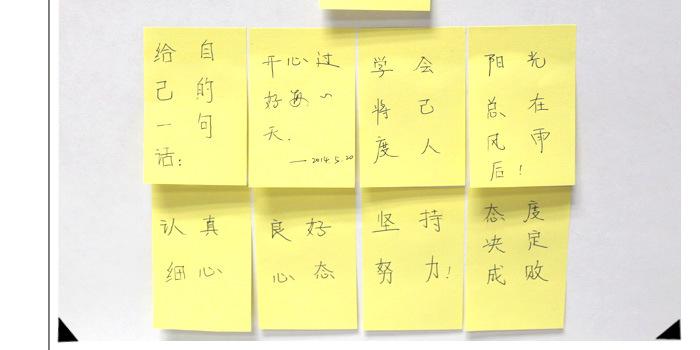 给自
己的
一句
话：
开心过
好每一
天.
——2014.5.20
学会
将己
度人
阳光
总在
风雨
后！
认真
细心
良好
心态
坚持
努力！
态度
决定
成败